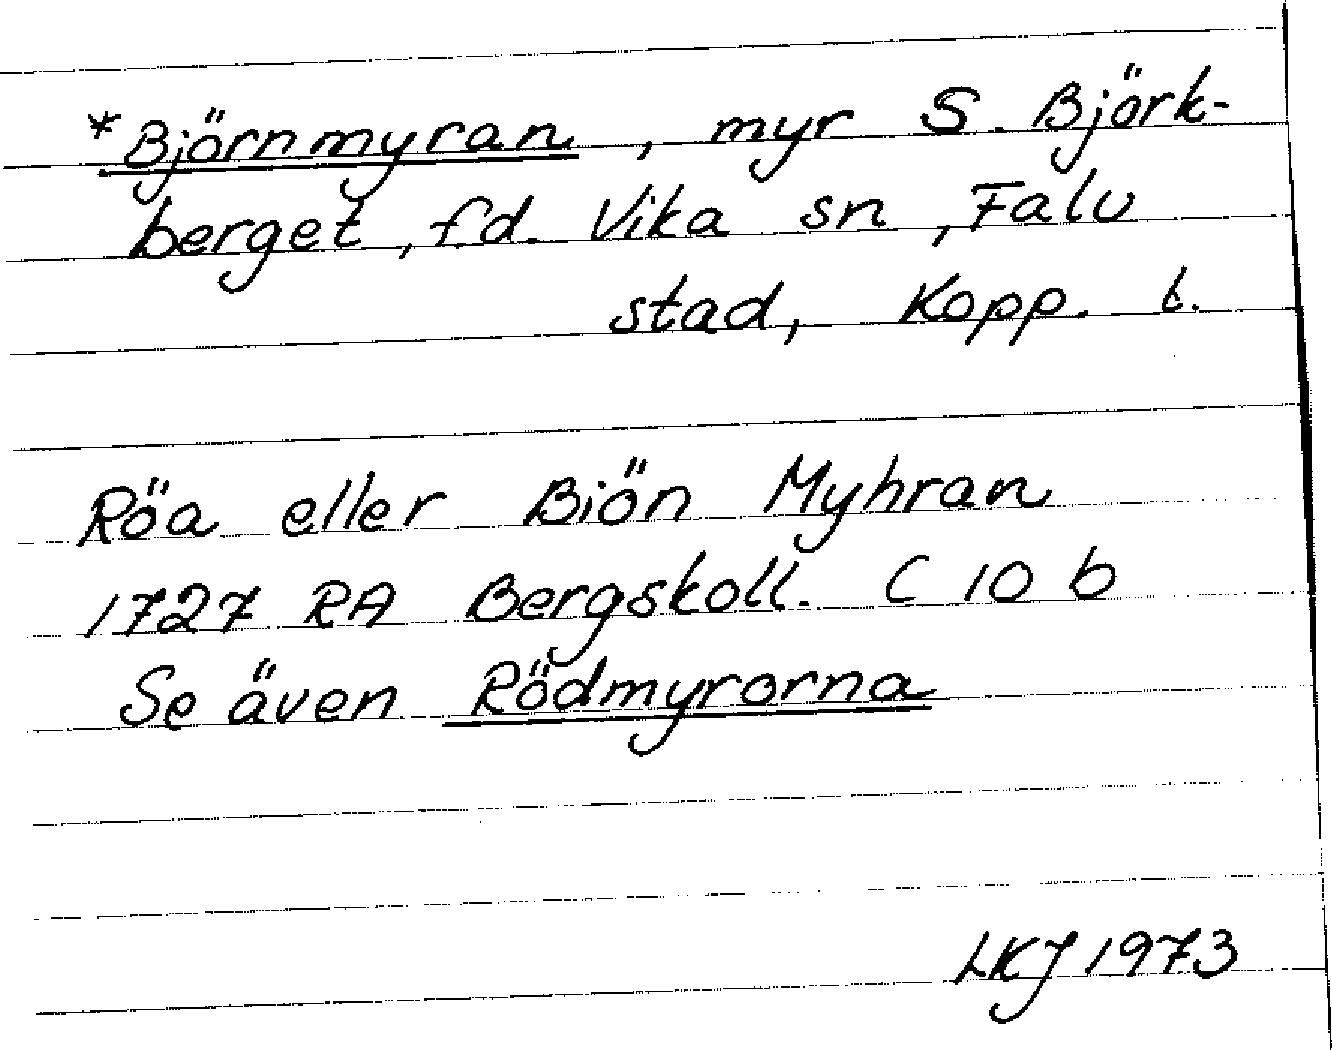 *Björnmyran, myr S. Björk-
berget, fd. Vika sn, Falu
stad, Kopp. l.
Röa eller Biön Myhran
1727 RA Bergskoll. C 10 b
Se även Rödmyrorna
LKJ 1973